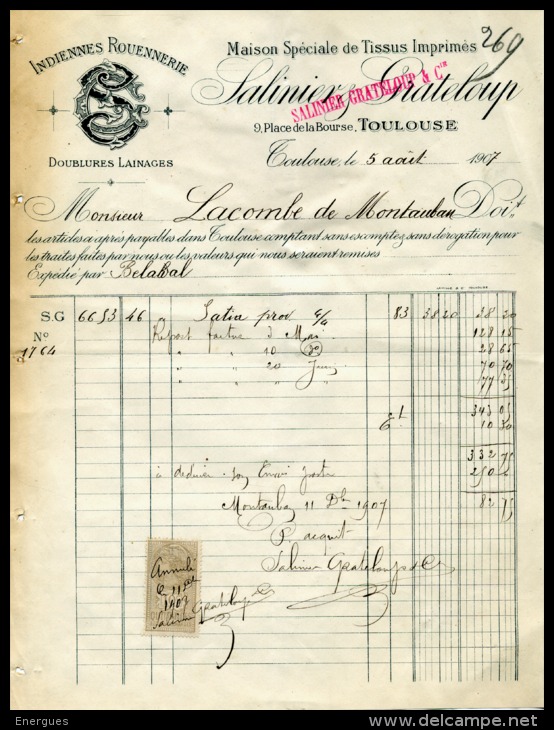 Indiennes Rouennerie
Doublures Lainages
Maison Spéciale de Tissus Imprimés
269
Salinier & Grateloup
SALINIER GRATELOUP & Cie
9, Place de la Bourse, TOULOUSE
Toulouse, le 5 août 1907
Monsieur Lacombe de Montauban Doit
les articles ci après payables dans Toulouse comptant sans escompte, sans dérogation pour
les traites faites par nous ou les valeurs qui nous seraient remises
Expédié par
S.G 6653 46 4/4 83 38 20 38 20
No Report facture 3 Mai 128 15
1764 " " 10 28 65
" " 20 70 70
77 35
Et 343 05
10 30
332 75
à déduire son 250
Montauban 11 1907 82 75
P. acquit
Salinier Grateloup & Cie
Annulé
le 11
1907
Salinier Grateloup
Energues
www.delcampe.net